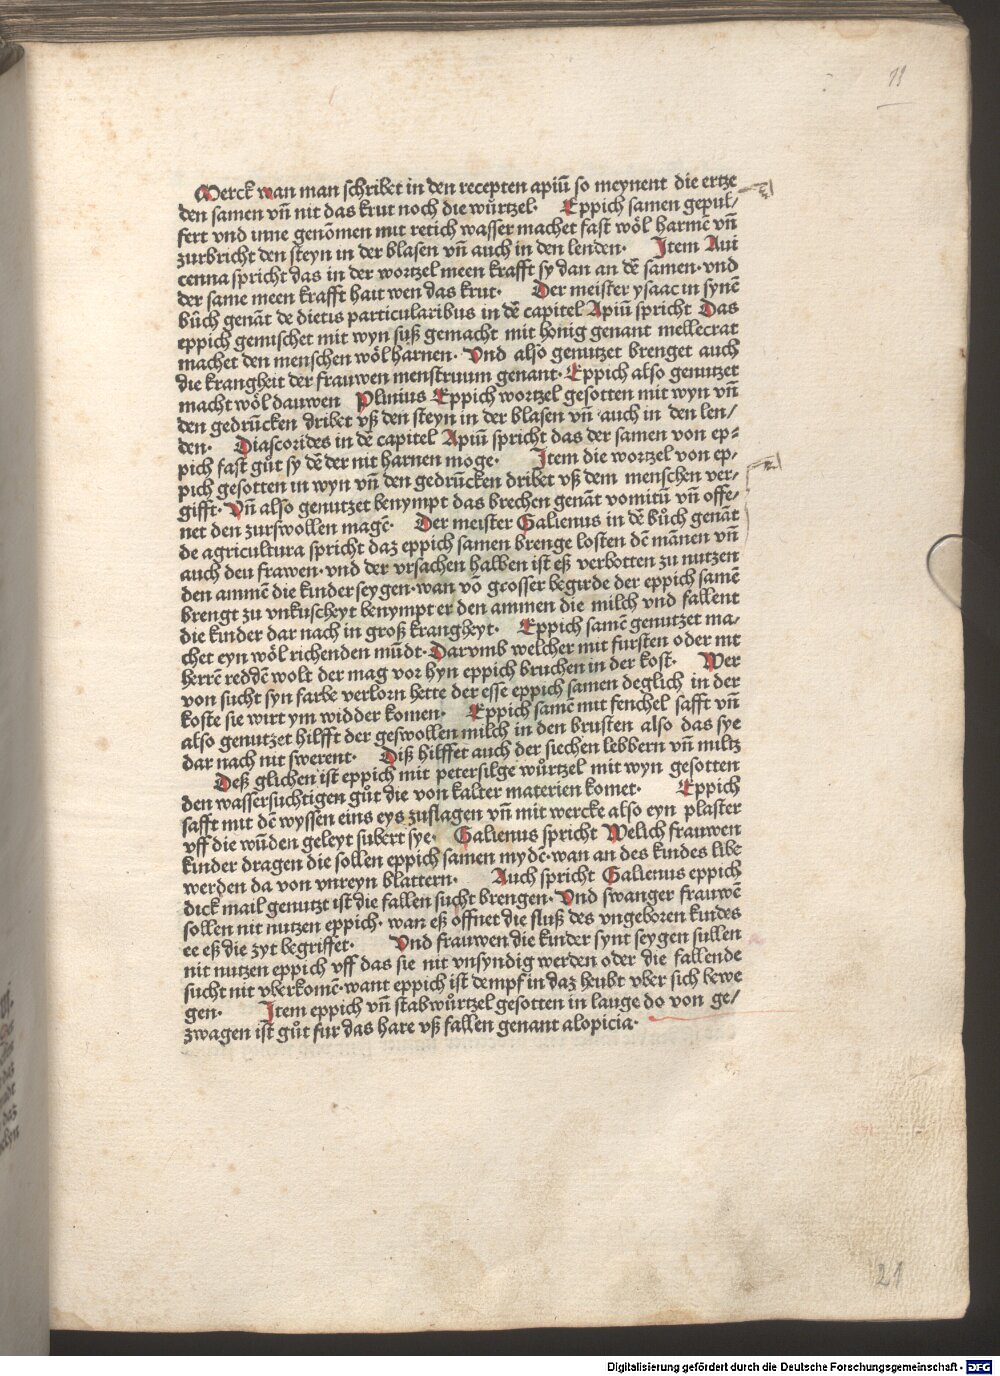 11
Merck wan man schribet in den recepten apiū so meynent die ertze
den samen vñ nit das krut noch die wůrtzel· Eppich samen gepul/
fert vnd inne genōmen mit retich wasser machet fast wöl harmē vñ
zurbricht den steyn in der blasen vñ auch in den lenden· Item Aui
cenna spricht das in der wortzel meen krafft sy dan an dē samen·vnd
der same meen krafft hait wen das krut· Der meister ysaac in synē
bůch genāt de dietis particularibus in dē capitel Apiū spricht Das
eppich gemischet mit wyn suß gemacht mit honig genant mellecrat
machet den menschen wöl harnen· Vnd also genutzet brenget auch
die krangheit der frauwen menstruum genant· Eppich also genutzet
macht wöl dauwen Plinius Eppich wortzel gesotten mit wyn vñ
den gedrůcken dribet vß den steyn in der blasen vñ auch in den len/
den· Diascorides in dē capitel Apiū spricht das der samen von ep⸗
pich fast gůt sy dē der nit harnen moge· Item die wortzel von ep⸗
pich gesotten in wyn vñ den gedrůcken dribet vß dem menschen ver⸗
gifft· Vñ also genutzet benympt das brechen genāt vomitū vñ offe⸗
net den zurswollen magē· Der meister Galienus in dē bůch genāt
de agricultura spricht daz eppich samen brenge losten dē mānen vñ
auch den frawen·vnd der vrsachen halben ist eß verbotten zu nutzen
den ammē die kinder seygen·wan vō grosser begirde der eppich samē
brengt zu vnkuscheyt benympt er den ammen die milch vnd fallent
die kinder dar nach in groß krangheyt· Eppich samē genutzet ma⸗
chet eyn wöl richenden mūdt·Darvmb welcher mit fursten oder mt
herrē reddē wolt der mag vor hyn eppich bruchen in der kost· Wer
von sucht syn farbe verlorn hette der esse eppich samen deglich in der
koste sie wirt ym widder komen· Eppich samē mit fenchel safft vñ
also genutzet hilfft der geswollen milch in den brusten also das sye
dar nach nit swerent· Diß hilffet auch der siechen lebbern vñ miltz
Deß glichen ist eppich mit petersilge wůrtzel mit wyn gesotten
den wassersuchtigen gůt die von kalter materien komet· Eppich
safft mit dē wyssen eins eys zuslagen vñ mit wercke also eyn plaster
vff die wūden geleyt subert sye· Galienus spricht Welich frauwen
kinder dragen die sollen eppich samen mydē·wan an des kindes libe
werden da von vnreyn blattern· Auch spricht Galienus eppich
dick mail genutzt ist die fallen sucht brengen· Vnd swanger frauwē
sollen nit nutzen eppich· wan eß offnet die fluß des vngeboren kindes
ee eß die zyt begriffet· Vnd frauwen die kinder synt seygen sullen
nit nutzen eppich vff das sie nit vnsyndig werden oder die fallende
sucht nit vberkomē·want eppich ist dempf in daz heubt vber sich bewe
gen· Item eppich vñ stabwůrtzel gesotten in lauge do von ge/
zwagen ist gůt fur das hare vß fallen genant alopicia·
21
Digitalisierung gefördert durch die Deutsche Forschungsgemeinschaft - DFG